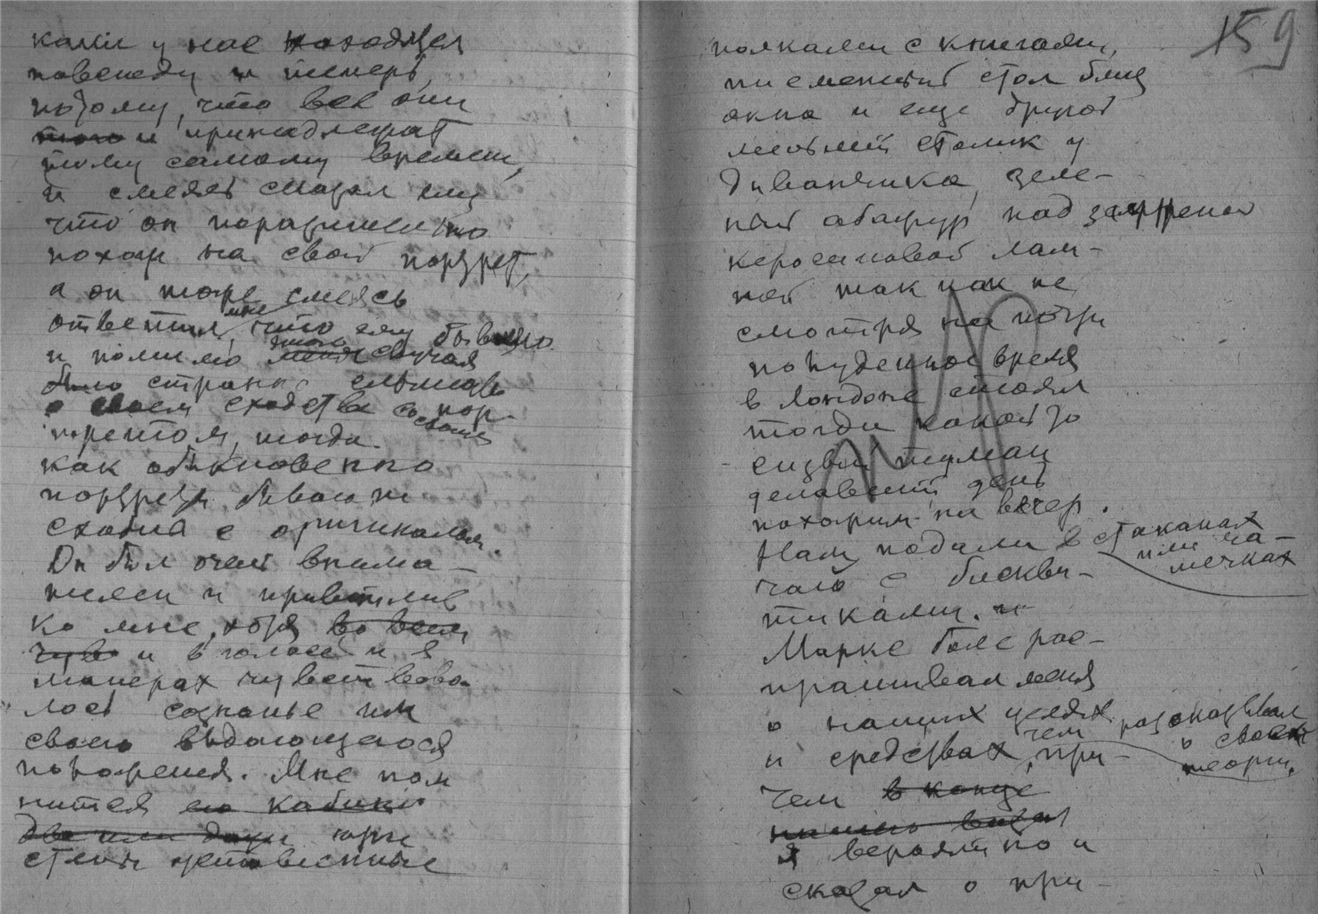 какие у нас находятся
повсюду и теперь,
потому, что все они
и принадлежат
тому самому времени,
и смеясь сказал ему
что он поразительно
похож на свой портрет,
а он тоже смеясь
ответил мне, что ему
и помимо этого случая
было странно слышать
о своем сходстве со своим пор-
третом, тогда
как обыкновенно
портреты бывают
сходны с оригиналом.
Он был очень внима-
телен и приветлив
ко мне, хотя во всем
и в голосе и в
манерах чувствова-
лось сознанье им
своего выдающегося
положения. Мне пом
нится его кабинет
две или даже три
стены увешанные
159
полками с книгами,
письменный стол близ
окна и еще другой
столик у
диванчика, зеле-
ный абажур над зажженой
керосиновой лам-
пой так как не
смотря на почти
полуденное время
в Лондоне стоял
тогда какой то
сизый туман
делавший день
похожим на вечер.
Нам подали в стаканах
или ча-
шечках
чай с бискви-
тиками. и
Маркс более рас-
прашивал меня
о наших целях
и средствах, чем рассказывал
о своей
теории,
при-
чем в конце
я вероятно и
сказал о при-